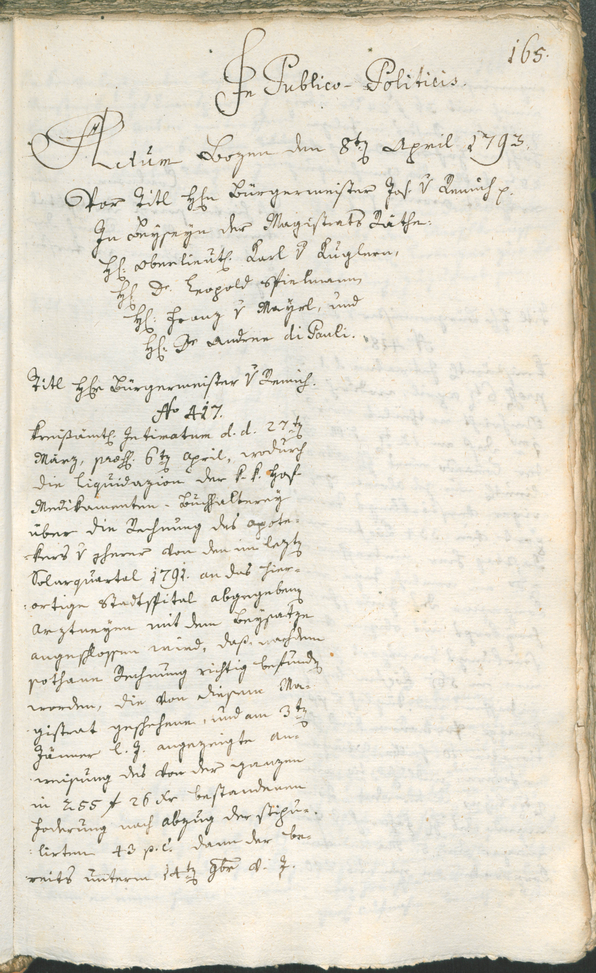 165.
In Publico-Politicis.
Actum Bozen den 8t April 1793.
Vor Titl Hhn Bürgermeister Jos. v Remich p.
In Beyseyn der Magistrats Räthe:
H: Oberlieut. Karl v Kuglern,
H: Dr. Leopold Spielmann
H: Franz v Mayrl, und
H: Dr Andree di Pauli.
Titl Hhr Bürgermeister v Remich.
No 417.
Kreisämtl. Intimatum d. d. 27t
März, præs. 6t April, wodurch
die Liquidazion der k. k. Hof
Medikamenten-Buchhalterey
über die Rechnung des Apote-
kers v von den im lezt
Solarquartal 1791. an das hier-
ortige Stadtspital abgegeben
Arztneyen mit dem Beysatze
angeschlossen wird, daß nachdem
sothane Rechnung richtig befund
worden, die von diesem Ma-
gistrat geschehene, und am 3t
Jänner l. J. angezeigte An-
weisung des von der ganzen
in 255 f 26 kr bestandenen
Foderung nach Abzug der stipu-
lirten 43 p. C. dann der be-
reits unterm 14t 9br v. J.